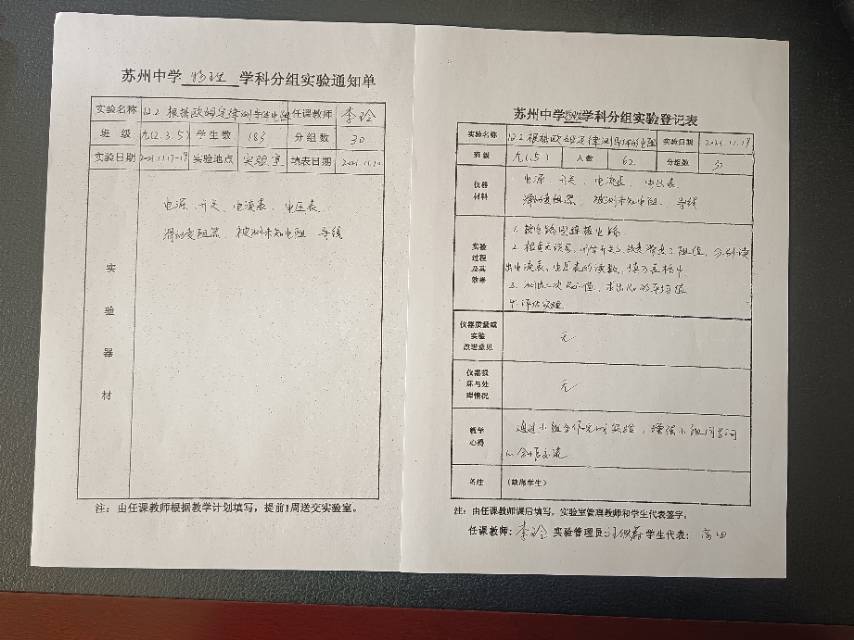 苏州中学 物理 学科分组实验通知单
实验名称 12.2 根据欧姆定律测导体电阻 任课教师 李玲
班 级 九(2.3.5) 学生数 185 分组数 30
实验日期 实验地点 实验室 填表日期
实验器材
电源 开关、电流表、电压表
滑动变阻器、被测未知电阻 导线
注：由任课教师根据教学计划填写，提前1周送交实验室。
苏州中学物理学科分组实验登记表
实验名称 12.2 根据欧姆定律测导体的电阻 实验日期
班级 九(5) 人数 62 分组数
仪器材料
电源 开关、电流表、电压表、
滑动变阻器、被测未知电阻、导线
实验过程及其效果
1. 按电路图连接电路
2. 检查无误后，闭合开关，改变滑片阻值，分别读
出电流表、电压表的读数，填入表格中
3.
4. 评估实验
仪器质量或实验改进意见
无
仪器损坏与处理情况
无
教学心得
通过小组合作完成实验，增强小组同学间
的合作与交流
备注 (缺席学生)
注：由任课教师课后填写，实验室管理教师和学生代表签字。
任课教师：李玲 实验管理员： 学生代表：